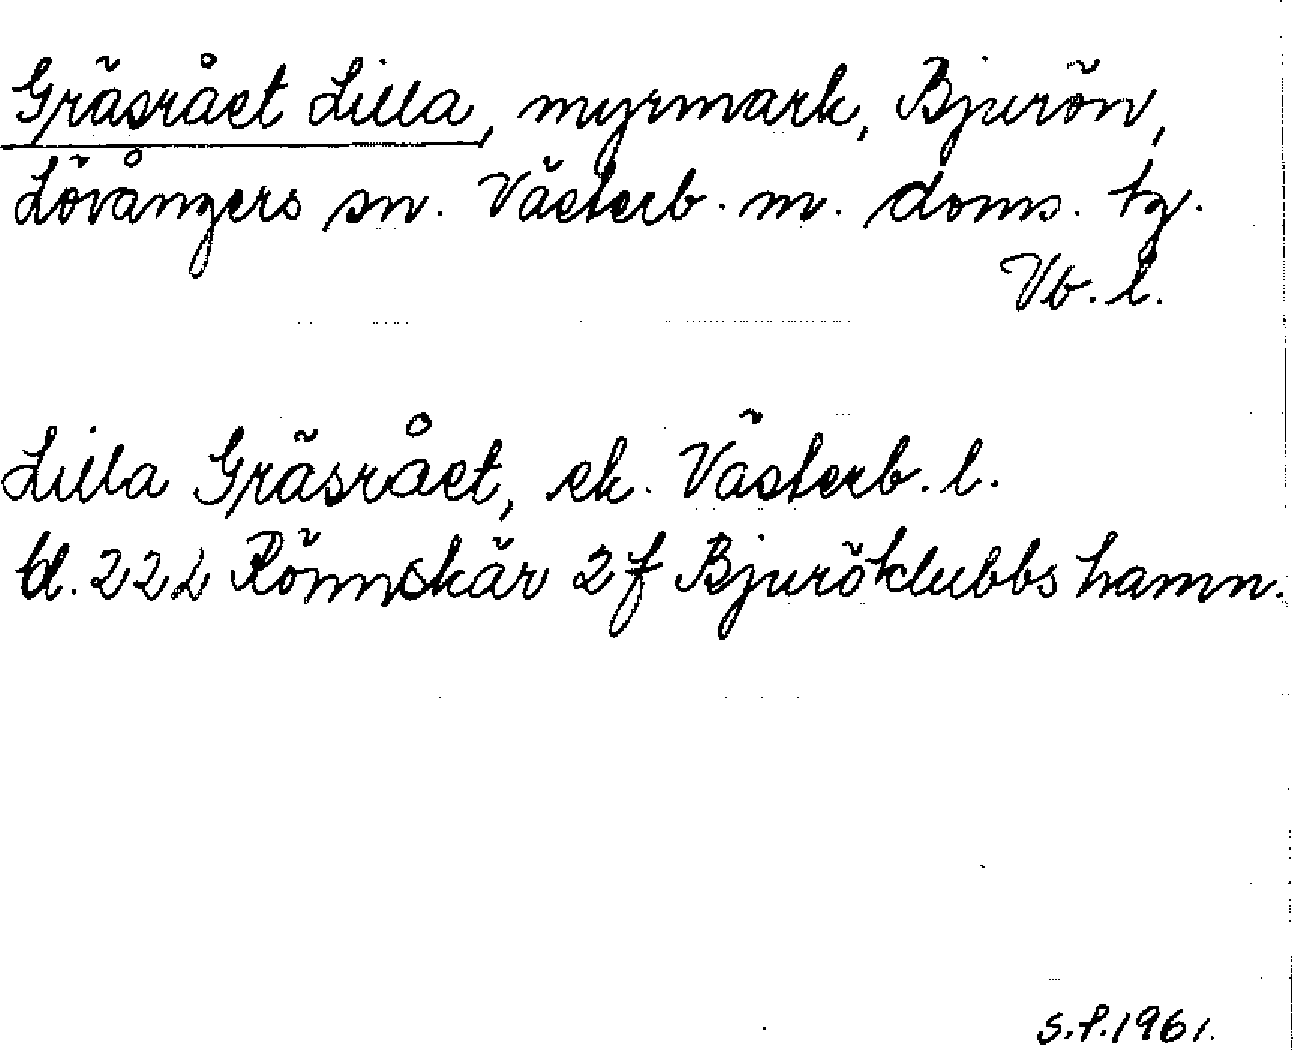 Gräsrået Lilla, myrmark, Bjurön,
Lövångers sn. Västerb. m. doms. tg.
Vb. l.
Lilla Gräsrået, ek. Västerb. l.
bl. 222 Rönnskär 2f Bjuröklubbs hamn.
S.P. 1961.